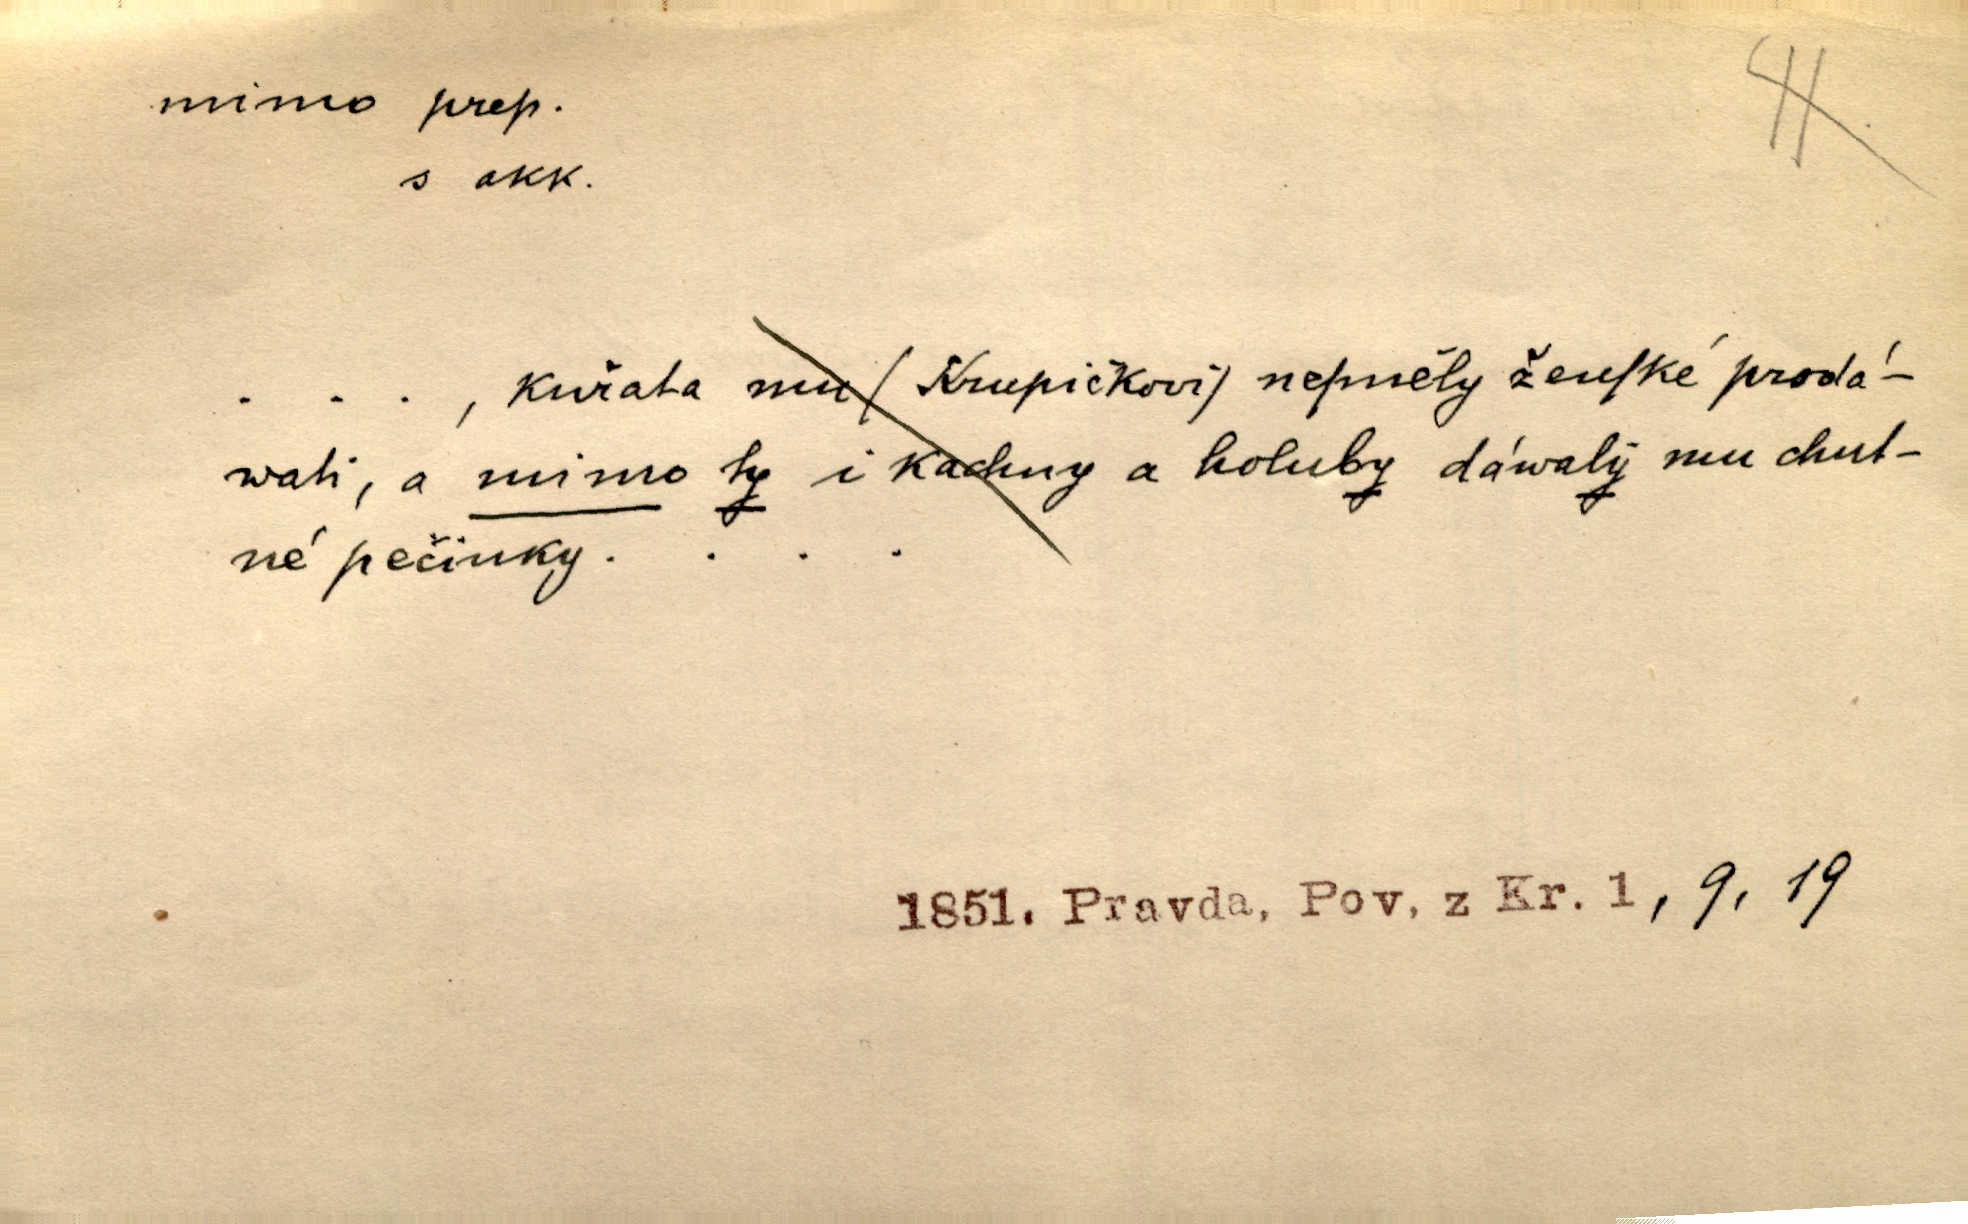 mimo prep.
s akk.
. . . , kuřata mu (Krupičkovi) nesměly ženſké prodá-
wati, a mimo ty i kachny a holuby dáwaly mu chut-
né pečinky. . . .
1851. Pravda, Pov. z Kr. 1, 9, 19